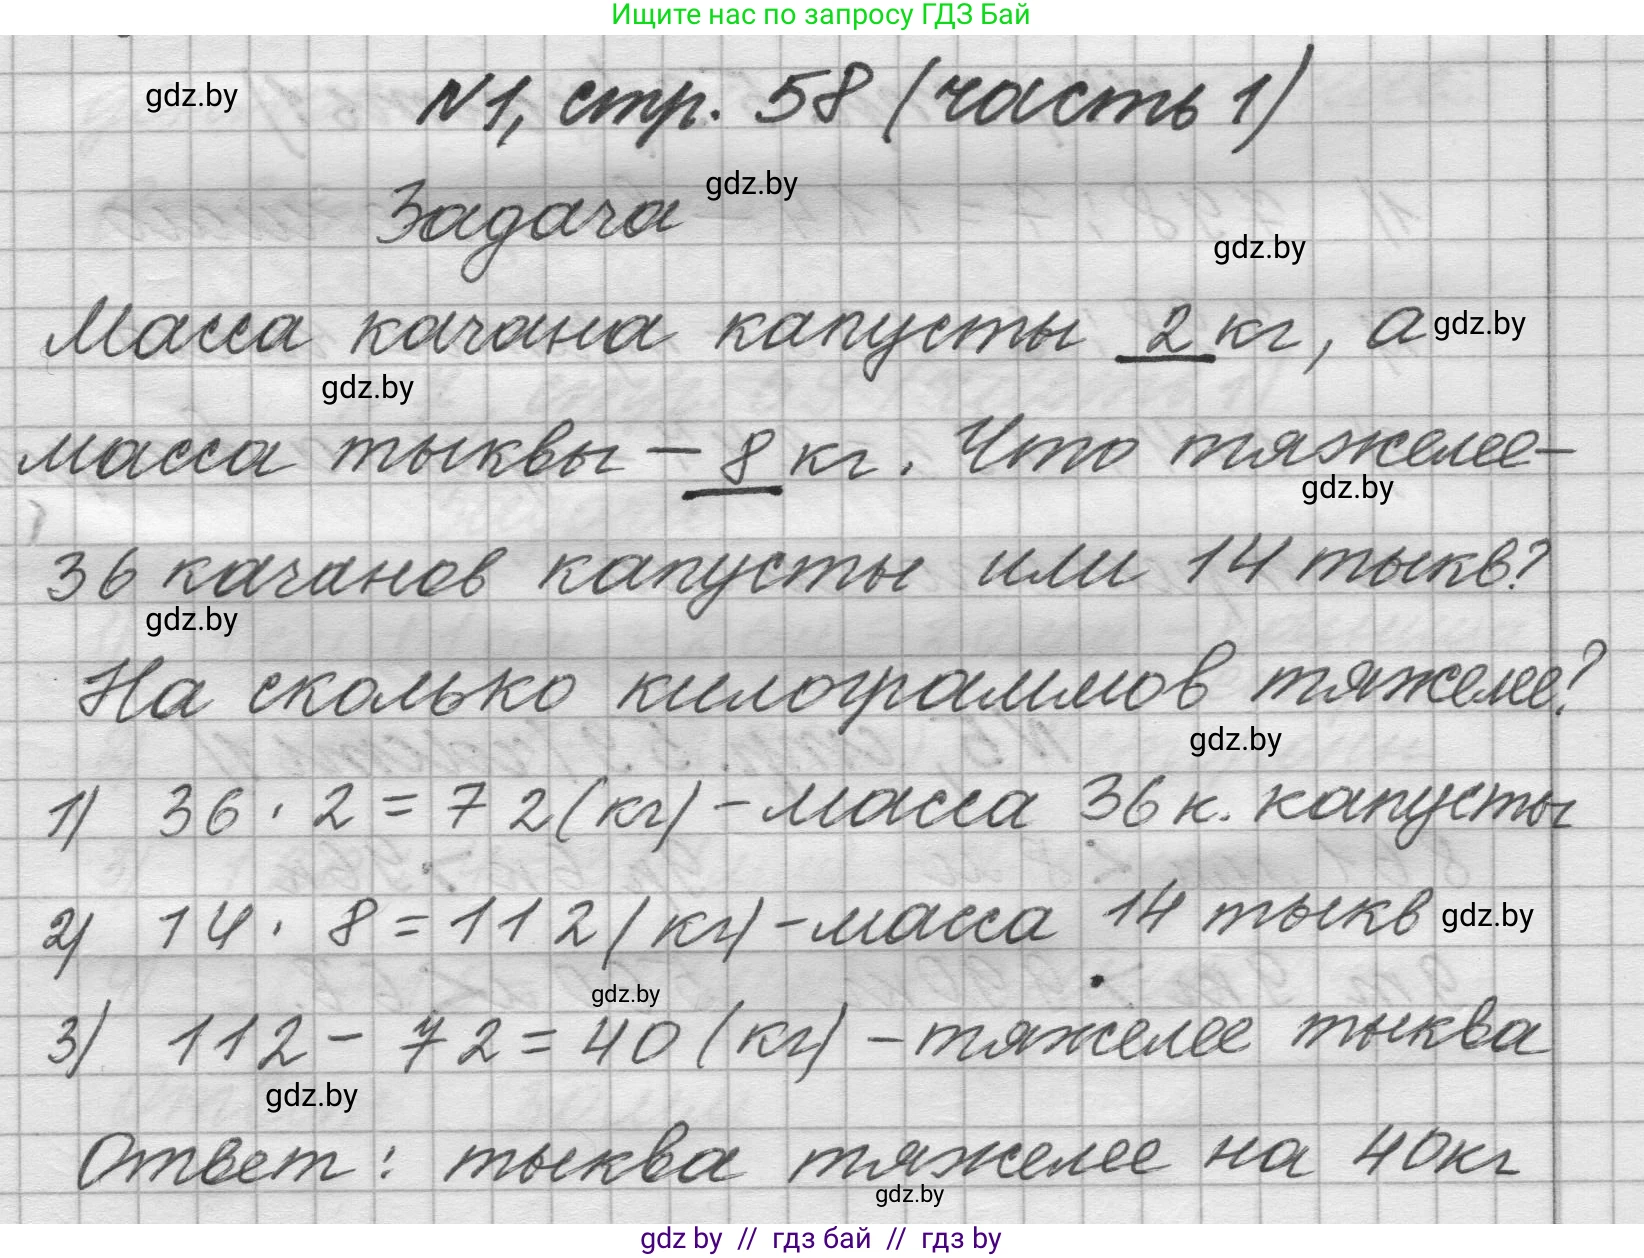 Ищите нас по запросу ГДЗ Бай
gdz.by
N1, стр. 58 (часть 1)
gdz.by
Задача
gdz.by
Масса качана капусты 2 кг, а
gdz.by
gdz.by
масса тыквы – 8 кг. Что тяжелее –
gdz.by
36 качанов капусты или 14 тыкв?
gdz.by
На сколько килограммов тяжелее?
gdz.by
1) 36 · 2 = 72 (кг) – масса 36 к. капусты
2) 14 · 8 = 112 (кг) – масса 14 тыкв
gdz.by
gdz.by
3) 112 – 72 = 40 (кг) – тяжелее тыква
gdz.by
Ответ: тыква тяжелее на 40 кг
gdz.by
gdz by // гдз бай // гдз by